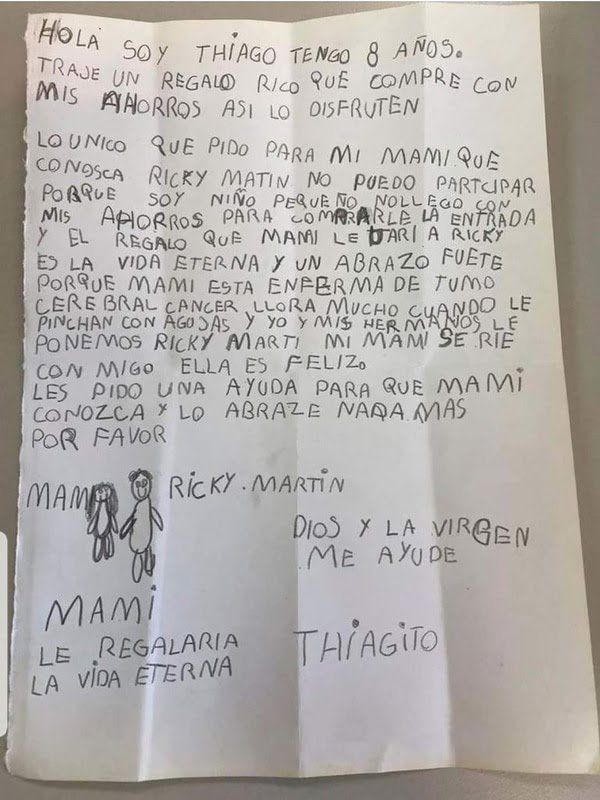 HOLA SOY THIAGO TENGO 8 AÑOS.
TRAJE UN REGALO RICO QUE COMPRE CON
MIS AHORROS ASI LO DISFRUTEN
LO UNICO QUE PIDO PARA MI MAMI QUE
CONOSCA RICKY MATIN NO PUEDO PARTCIPAR
PORQUE SOY NIÑO PEQUEÑO NOLLEGO CON
MIS AHORROS PARA COMPRARLE LA ENTRADA
Y EL REGALO QUE MAMI LE DARIA RICKY
ES LA VIDA ETERNA Y UN ABRAZO FUETE
PORQUE MAMI ESTA ENFERMA DE TUMO
CEREBRAL CANCER LLORA MUCHO CUANDO LE
PINCHAN CON AGUJAS Y YO Y MIS HERMANOS LE
PONEMOS RICKY MARTI MI MAMI SE RIE
CON MIGO ELLA ES FELIZ.
LES PIDO UNA AYUDA PARA QUE MAMI
CONOZCA Y LO ABRAZE NADA MAS
POR FAVOR
MAMI RICKY. MARTIN
DIOS Y LA VIRGEN
ME AYUDE
MAMI
LE REGALARIA
LA VIDA ETERNA
THIAGITO